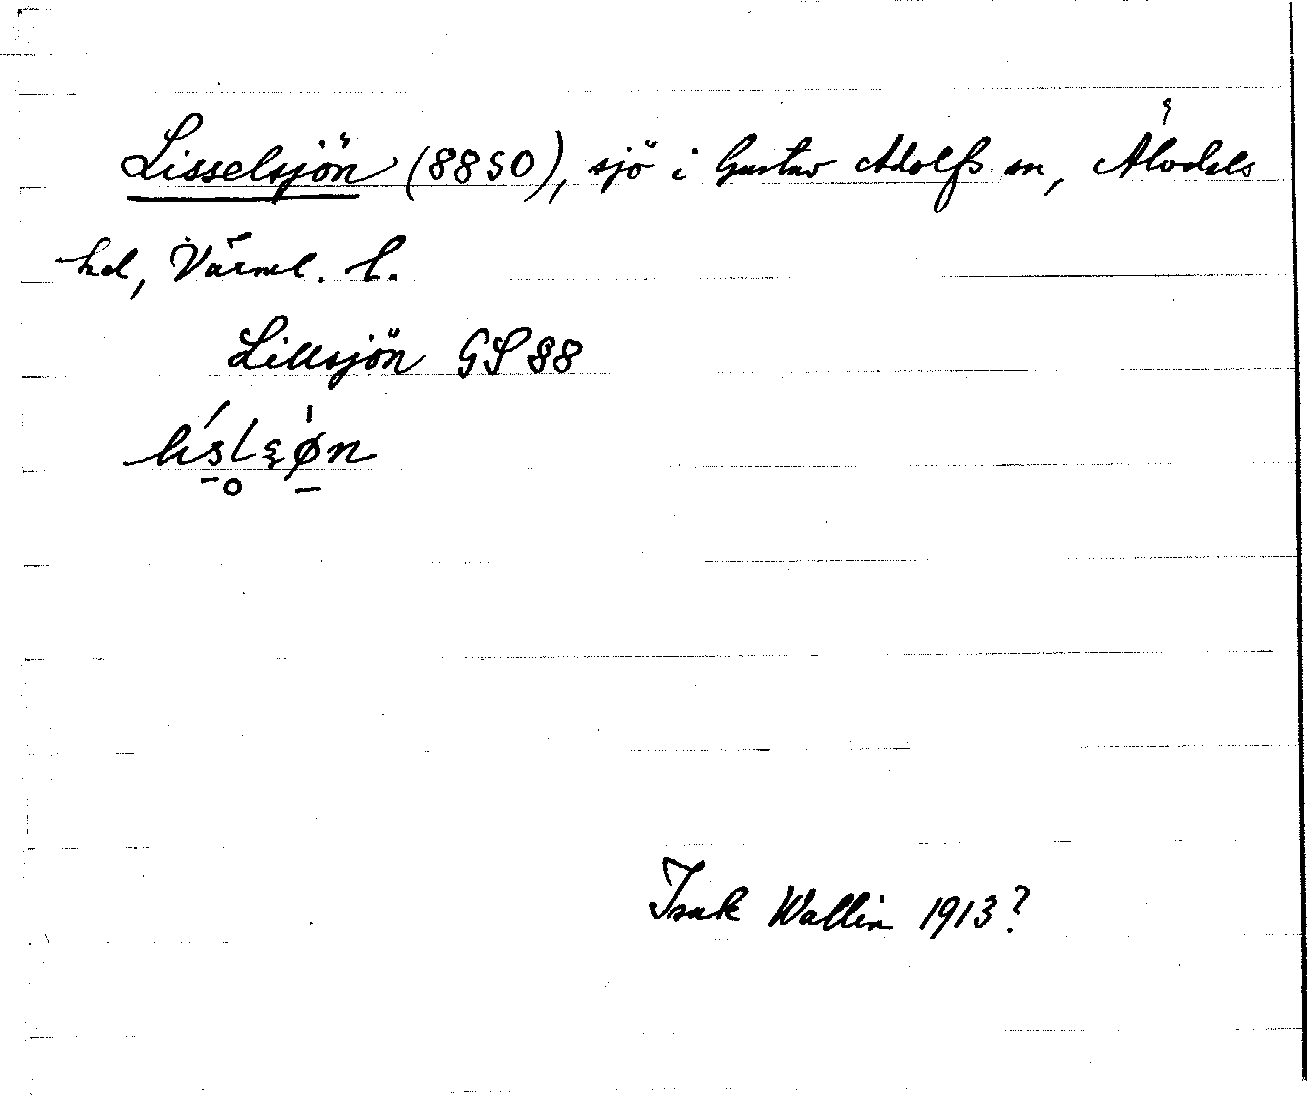 Lisselsjön (8850), sjö i Gustav Adolfs sn, Älvdals
hd, Värml. l.
Lillsjön GS 88
Isak Wallin 1913?